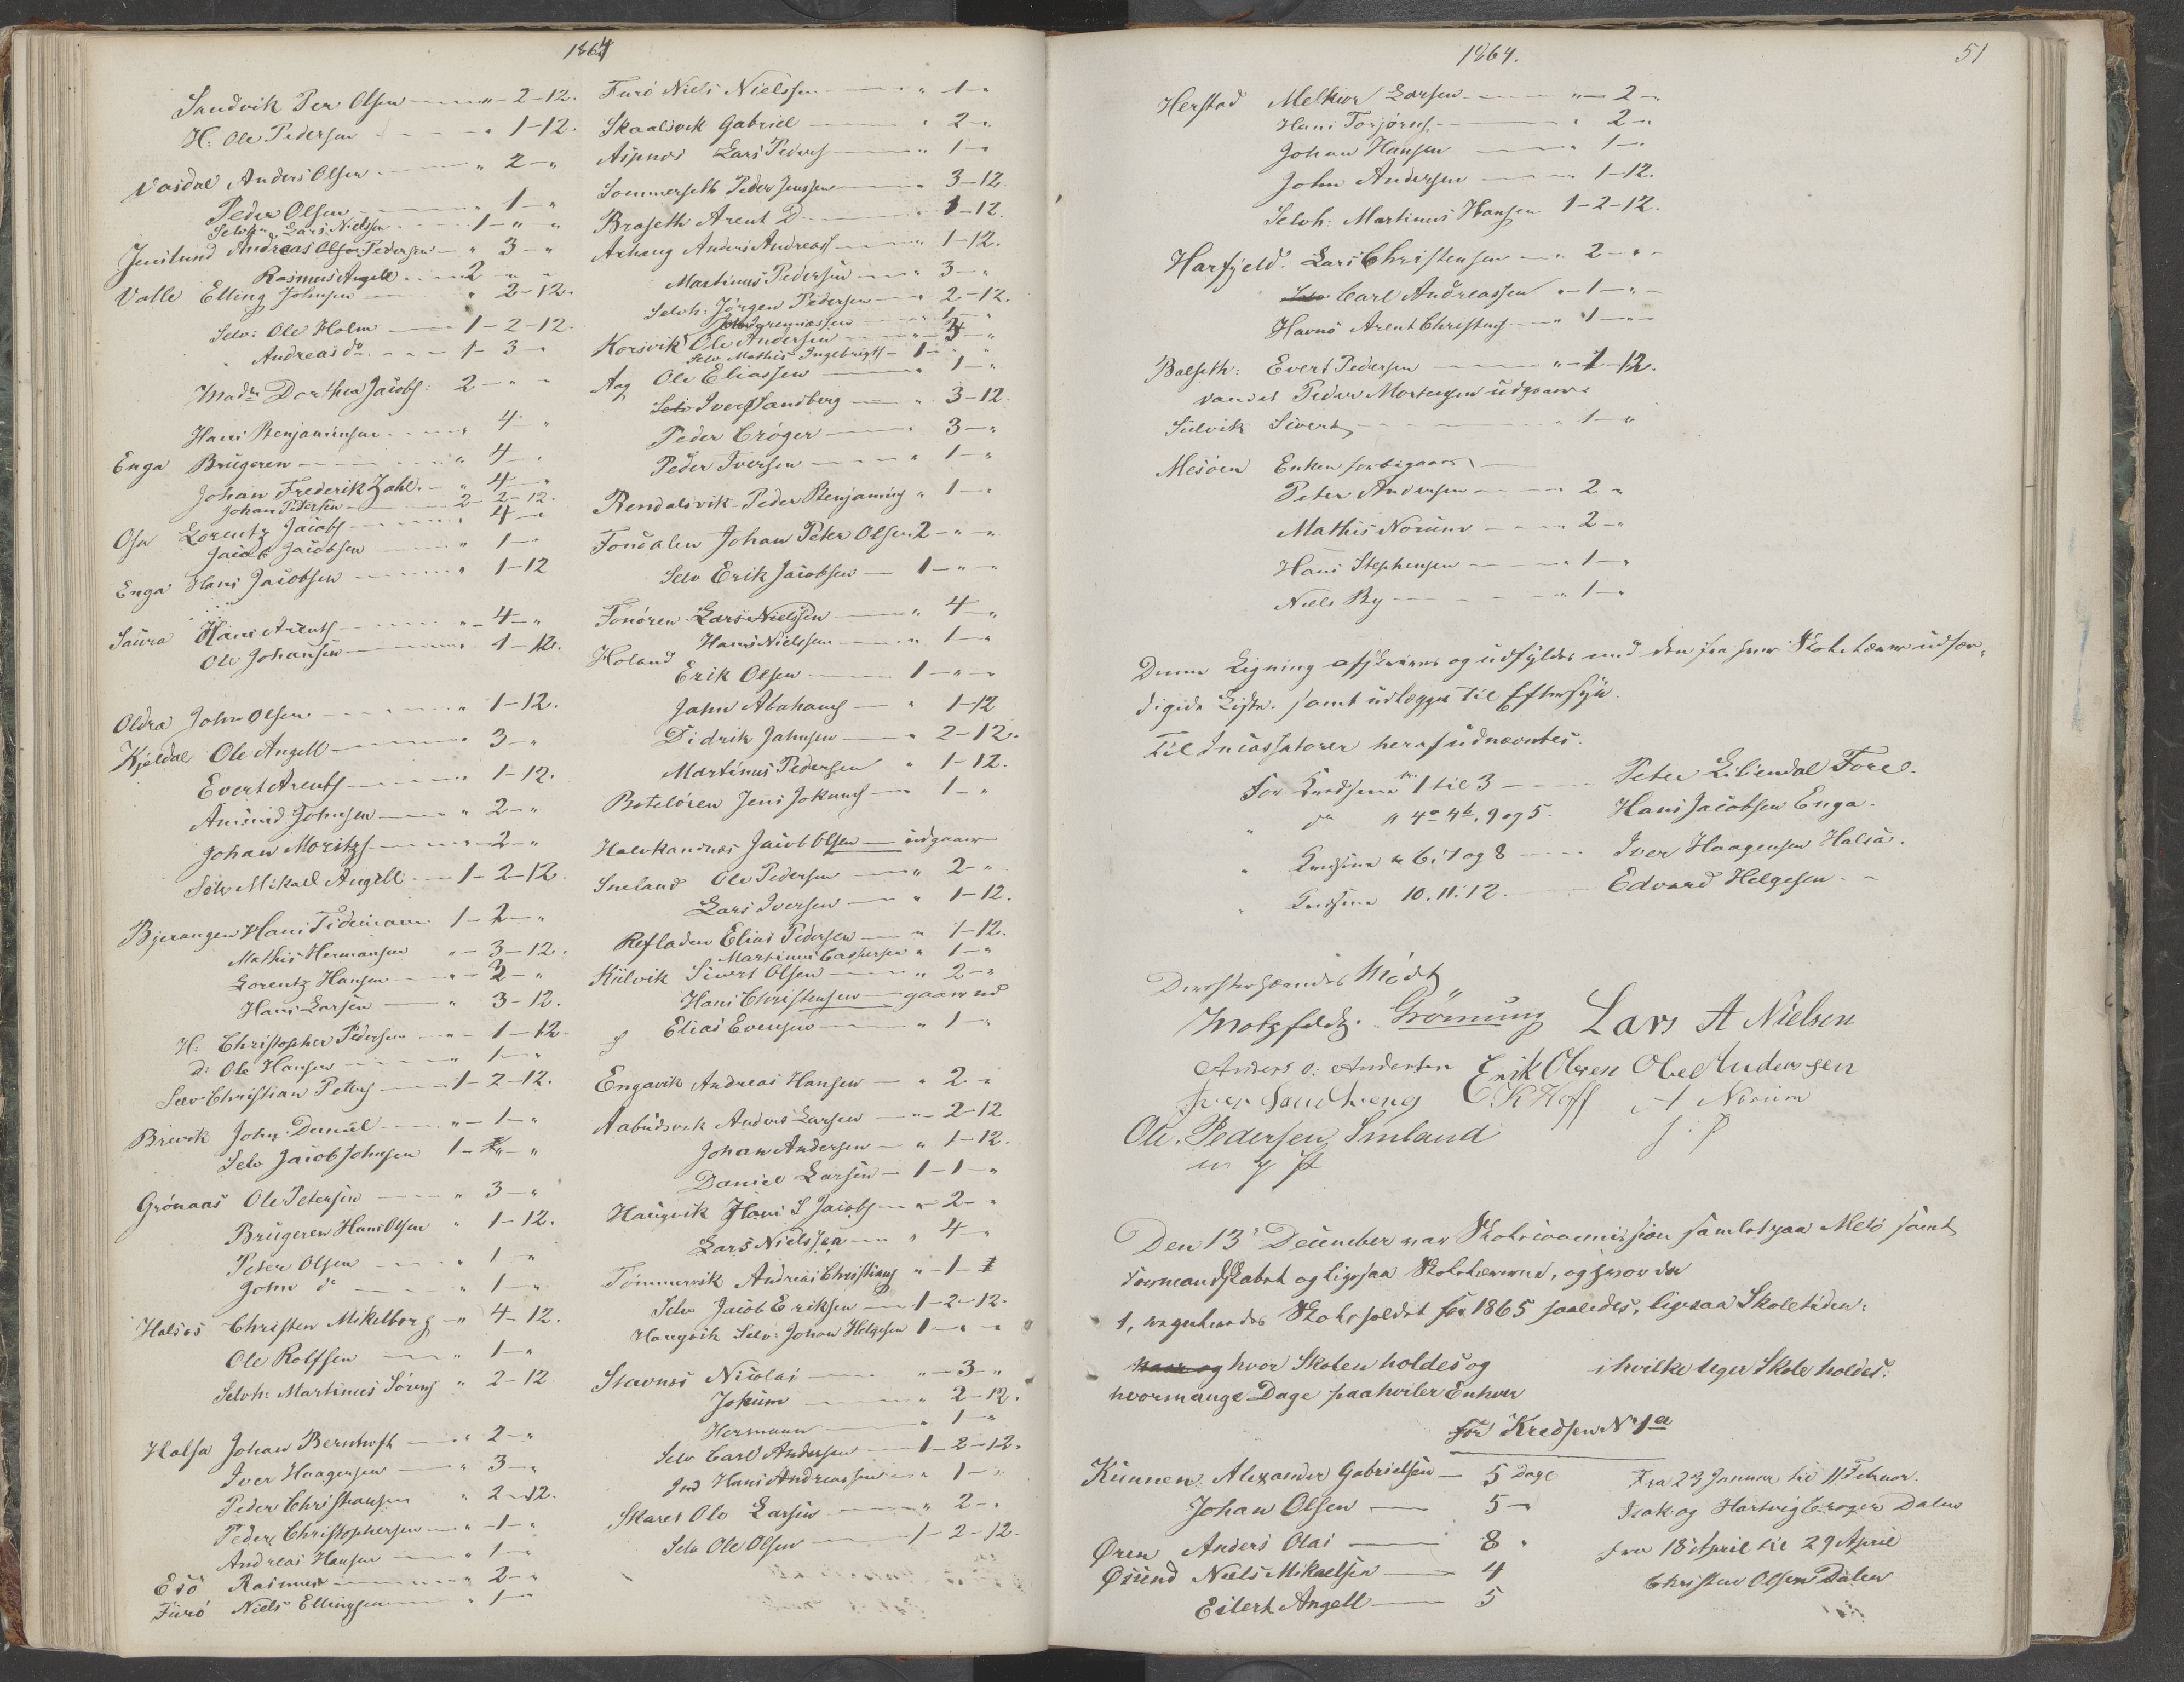 1864
Sandvik Per Olsen — „ - 2-12.
H: Ole Pedersen — „ 1-12.
Vasdal Anders Olsen — „ 2 - „
Peder Olsen — „ 1 - „
Selvh. Lars Nielsen — 1 - „ - „
Jenslund Andreas Olsen Pedersen — „ 3 - „
Rasmus Angell — 2 - „
Valle Elling Johnsen — „ 2-12.
Selv: Ole Holm — 1-2-12.
„ Andreas do — 1-3 - „
Made Dorthea Jacobs: 2 - „ - „
Hans Benjaminsen — „ 4 - „
Enga Brugeren — „ 4 - „
Johan Frederik Zahl. — „ 4 - „
Johan Petersen — 2-2-12.
Osa Lorentz Jacobs — „ 4 - „
Jacob Jacobsen — „ 1 - „
Enga Hans Jacobsen — „ 1-12
Saura Hans Arents — „ - 4 - „
Ole Johansen — „ 1-12.
Oldra John Olsen — „ 1-12.
Kjeldal Ole Angell — „ 3 - „
Evert Arents — „ 1-12.
Amund Johnsen — „ 2 - „
Johan Moritzs — „ - 2 - „
Selv Mikael Angell — 1-2-12.
Bjerangen Hans Tidemann 1-2 - „
Mathis Hermansen „ - 3-12.
Lorentz Hansen — „ - 2 - „
Hans Larsen — „ 3-12.
H: Christopher Pedersen — „ 1-12.
d: Ole Hansen — „ 1 - „
Selv Christian Peters — 1-2-12.
Brevik John Daniel — „ - 1 - „
Selv Jacob Johnsen 1 - „ - „
Grönaas Ole Petersen — „ 3 - „
Brugeren Hans Olsen „ 1-12.
Peter Olsen — „ 1 - „
John do — „ 1 - „
Halsos Christen Mikelborg - „ 4-12.
Ole Rolfsen — „ 1 - „
Selvh: Martinus Sörens „ 2-12
Halsa Johan Bernhoft — „ 2 - „
Iver Haagensen — „ 3 - „
Peder Christiansen „ 2-12.
Peder Christophersen — „ - 1 - „
Andreas Hansen — „ 1 - „
Esö Rasmus — „ 2 - „
Furö Niels Ellingsen — „ 1 - „
Furö Niels Nielssen — „ 1 - „
Skaalsvik Gabriel — „ 2 - „
Aspnes Lars Peders — „ 1 - „
Sommerseth Peder Jenssen — „ 3-12.
Braseth Arent D. — „ 1-12.
Arhaug Anders Andreass — „ 1-12.
Martinus Pedersen — „ 3 - „
Selvh: Jörgen Pedersen — „ 2-12.
Korsvik Ole Andersen — „ - 3 - „
Selv Mathis Ingebrigts — 1 - „ - „
Aag Ole Eliassen — „ 1 - „
Selv Iver Sandberg — „ 3-12.
Peder Cröger — „ 3 - „
Peder Iversen — „ 1 - „
Rendalsvik - Peder Benjamins „ 1 - „
Fondalen Johan Peter Olsen 2 - „ - „
Selv Erik Jacobsen — 1 - „ - „
Fonören Lars Nielsen — „ 4 - „
Hans Nielssen — „ 1 - „
Holand
Erik Olsen — 1 - „ - „
Jahn Abrahams — „ 1-12
Didrik Jahnsen — „ 2-12.
Martinus Pedersen „ 1-12.
Botelören Jens Jokums — „ 1 - „
Halvkandnes Jacob Olsen — udgaaer
Smeland Ole Pedersen — „ 2 - „
Lars Iversen — „ 1-12.
Refladen Elias Pedersen — „ 1-12.
Martinus Caspersen „ 1 - „
Kilvik Sivert Olsen — „ 2 - „
Hans Christensen — gaaer ud
Elias Evensen — „ 1 - „
Engavik Andreas Hansen — „ 2 - „
Aabudsvik Anders Larsen — „ - 2-12
Johan Andersen — „ 1-12.
Daniel Larsen — 1-1 - „
Haugvik Hans S Jacobs — „ - 2 - „
Lars Nielssen — „ 4 - „
Tömmervik Andreas Christians „ - 1 -
Selv Jacob Eriksen — 1-2-12.
Haugvik Selv: Johan Helgesen 1 - „ - „
Stavnes Nicolai — „ - 3 - „
Jokum — „ 2-12.
Hermann — „ 1 - „
Selv Carl Andersen — 1-2-12.
Ind Hans Andreassen — „ 1 - „
Skaret Ole Larsen — „ 2 - „
Selv Ole Olsen — 1-2-12.
1864.
51
Herstad Melkior Larsen — „ - 2 - „
Hans Torjörns — „ 2 - „
Johan Hansen — „ 1 - „
John Andersen — „ 1-12.
Selvh. Martinus Hansen 1-2-12.
Harfjeld. Lars Christensen — „ 2 - „ -
Selv Carl Andreassen „ - 1 - „ -
Havnö Arent Christens — „ 1 - „ -
Balseth: Evert Pedersen — „ - 1-12.
vandes Peder Mortensen udgaaer
Sulvik Sivert — „ 1 - „
Mesöen Enken forbigaaes —
Peter Andersen — „ 2 „
Mathis Norum — „ 2 - „
Hans Stephensen — „ 1 - „
Niels By — „ 1 - „
Denne Ligning afskrives og udfyldes med den fra hver Skolelærer udfær-
digede Liste. samt udlægges til Eftersyn.
Til Incassatorer heraf udnævntes.
For Kredsene No 1 til 3 — Peter Libendal Fore.
„ do „ 4a 4b, 9 og 5. Hans Jacobsen Enga.
„ Kredsene „ 6; 7 og 8 — Iver Haagensen Halsa.
„ Kredsene 10. 11. 12. — Edvard Helgesen. -
Derefter hævedes Mödet
Motzfeldt. Grönning Lars A Nielsen
Anders O. Andersen Erik Olsen Ole Andersen
Iver Sandberg C K Hoff A Norum
Ole. Pedersen Smland
Den 13de December var Skolecommission samlet paa Melö samt
Formandskabet og ligesaa Skolelærerne, og hvor da
1, vegtueredes Skoleholdet for 1865 saaledes, ligesaa Skoletiden:
naar og hvor Skolen holdes og i hvilke Uger Skole holdes.
hvormange Dage paahviler Enhver
For Kredsen No 1a
Kunnen Alexander Gabrielsen — 5 Dage Fra 23 Januar til 11 Febuar.
Johan Olsen — 5 - „ Isak og Hartvig Creger Dalen
Øren Anders Olai — 8 „ fra 18 April til 29 April
Øsund Niels Mikaelsen — 4 Christen Olsen Dalen
Eilert Angell — 5